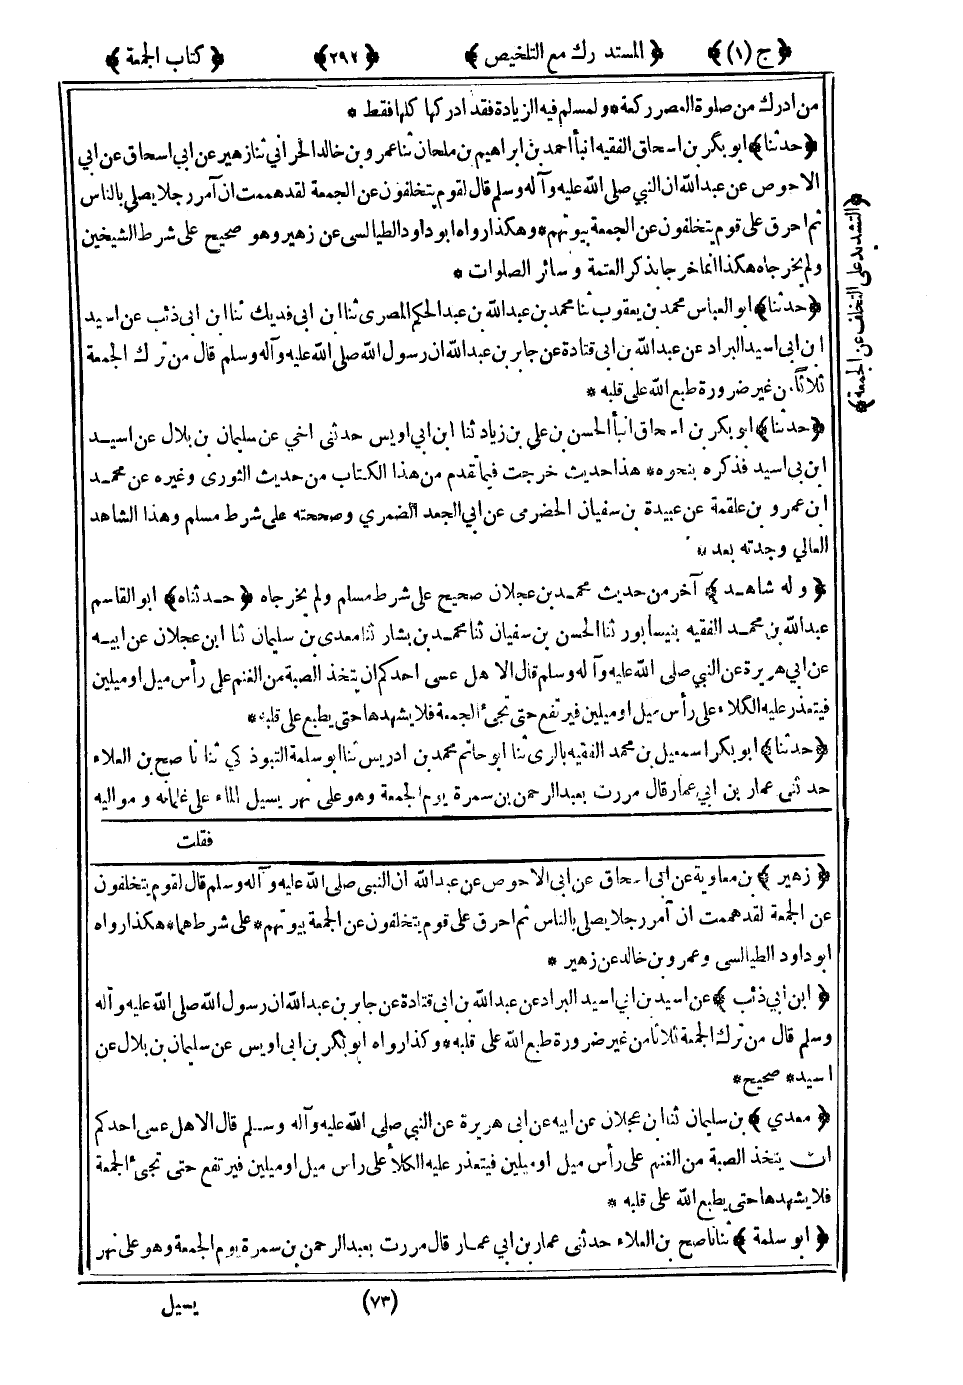 ﴿ ج (١) ﴾ ﴿ المستدرك مع التلخيص ﴾ ﴿ ٢٩٢ ﴾ ﴿ كتاب الجمعة ﴾
من ادرك من صلوة العصر ركعة * ولمسلم فيه الزيادة فقد ادركها كلها فقط *
﴿ حدثنا ﴾ ابو بكر بن اسحاق الفقيه انبأ احمد بن ابراهيم بن ملحان ثنا عمرو بن خالد الحراني ثنا زهير عن ابي اسحاق عن ابي
الاحوص عن عبدالله ان النبي صلى الله عليه وآله وسلم قال لقوم يتخلفون عن الجمعة لقد هممت ان آمر رجلا يصلي بالناس
ثم احرق على قوم يتخلفون عن الجمعة بيوتهم * وهكذا رواه ابو داود الطيالسى عن زهير وهو صحيح على شرط الشيخين
ولم يخرجاه هكذا انما خرجا بذكر العتمة وسائر الصلوات *
﴿ حدثنا ﴾ ابو العباس محمد بن يعقوب ثنا محمد بن عبدالله بن عبدالحكم المصرى ثنا ابن ابى فديك ثنا ابن ابى ذئب عن اسيد
ابن ابى اسيد البراد عن عبدالله بن ابى قتادة عن جابر بن عبدالله ان رسول الله صلى الله عليه وآله وسلم قال من ترك الجمعة
ثلاثاً من غير ضرورة طبع الله على قلبه *
﴿ حدثنا ﴾ ابو بكر بن اسحاق انبأ الحسن بن علي بن زياد ثنا ابن ابي اويس حدثنى اخي عن سليمان بن بلال عن اسيد
ابن بى اسيد فذكره بنحوه * هذا حديث خرجت فيما تقدم من هذا الكتاب من حديث الثورى وغيره عن محمد
ابن عمرو بن علقمة عن عبيدة بن سفيان الحضرمى عن ابي الجعد الضمري وصححته على شرط مسلم وهذا الشاهد
العالي وجدته بعد *
﴿ وله شاهد ﴾ آخر من حديث محمد بن عجلان صحيح على شرط مسلم ولم يخرجاه ﴿ حدثناه ﴾ ابو القاسم
عبدالله بن محمد الفقيه بنيسابور ثنا الحسن بن سفيان ثنا محمد بن بشار ثنا معدى بن سليمان ثنا ابن عجلان عن ابيه
عن ابي هريرة عن النبي صلى الله عليه وآله وسلم قال الا هل عسى احدكم ان يتخذ الصبة من الغنم على رأس ميل او ميلين
فيتعذر عليه الكلاء على رأس ميل او ميلين فيرتفع حتى تجئ الجمعة فلا يشهدها حتى يطبع على قلبه *
﴿ حدثنا ﴾ ابو بكر اسمعيل بن محمد الفقيه بالرى ثنا ابو حاتم محمد بن ادريس ثنا ابو سلمة التبوذكي ثنا ناصح بن العلاء
حدثنى عمار بن ابي عمار قال مررت بعبدالرحمن بن سمرة يوم الجمعة وهو على نهر يسيل الماء على غلمانه ومواليه
فقلت
﴿ زهير ﴾ بن معاوية عن ابى اسحاق عن ابى الاحوص عن عبدالله ان النبي صلى الله عليه وآله وسلم قال لقوم يتخلفون
عن الجمعة لقد هممت ان آمر رجلا يصلى بالناس ثم احرق على قوم يتخلفون عن الجمعة بيوتهم * على شرطهما * هكذا رواه
ابو داود الطيالسى وعمرو بن خالد عن زهير *
﴿ ابن ابي ذئب ﴾ عن اسيد بن ابي اسيد البراد عن عبدالله بن ابى قتادة عن جابر بن عبدالله ان رسول الله صلى الله عليه وآله
وسلم قال من ترك الجمعة ثلاثا من غير ضرورة طبع الله على قلبه * وكذا رواه ابو بكر بن ابى اويس عن سليمان بن بلال عن
اسيد * صحيح *
﴿ معدي ﴾ بن سليمان ثنا ابن عجلان عن ابيه عن ابى هريرة عن النبي صلى الله عليه وآله وسلم قال الا هل عسى احدكم
ان يتخذ الصبة من الغنم على رأس ميل او ميلين فيتعذر عليه الكلأ على راس ميل او ميلين فيرتفع حتى تجئ الجمعة
فلا يشهدها حتى يطبع الله على قلبه *
﴿ ابو سلمة ﴾ ثنا ناصح بن العلاء حدثنى عمار بن ابي عمار قال مررت بعبدالرحمن بن سمرة يوم الجمعة وهو على نهر
(٧٣) يسيل
﴿ التشديد على التخلف عن الجمعة ﴾